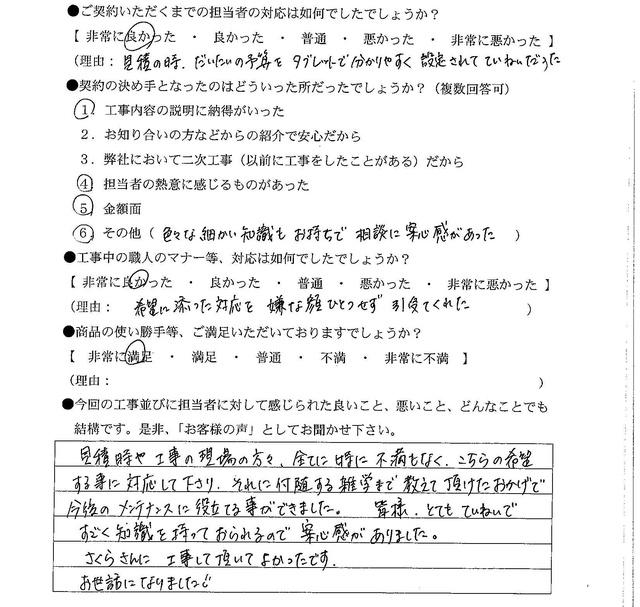 ●ご契約いただくまでの担当者の対応は如何でしたでしょうか？
【 非常に良かった ・ 良かった ・ 普通 ・ 悪かった ・ 非常に悪かった 】
(理由：見積の時、だいたいの予算を タブレットで分かりやすく 設定されて ていねいだった
●契約の決め手となったのはどういった所だったでしょうか？（複数回答可）
1．工事内容の説明に納得がいった
2．お知り合いの方などからの紹介で安心だから
3．弊社において二次工事（以前に工事をしたことがある）だから
4．担当者の熱意に感じるものがあった
5．金額面
6．その他（ 色々な細かい知識も お持ちで 相談に安心感があった ）
●工事中の職人のマナー等、対応は如何でしたでしょうか？
【 非常に良かった ・ 良かった ・ 普通 ・ 悪かった ・ 非常に悪かった 】
(理由： 希望に添った対応を 嫌な顔ひとつせず 引受てくれた ）
●商品の使い勝手等、ご満足いただいておりますでしょうか？
【 非常に満足 ・ 満足 ・ 普通 ・ 不満 ・ 非常に不満 】
(理由： ）
●今回の工事並びに担当者に対して感じられた良いこと、悪いこと、どんなことでも
結構です。是非、「お客様の声」としてお聞かせ下さい。
見積時や 工事の現場の方々、全てに 時に 不満もなく、こちらの希望
する事に 対応して下さり、それに付随する雑学まで 教えて 頂けたおかげで
今後の メンテナンスに 役立てる事ができました。 皆様、とても ていねいで
すごく 知識を 持っておられるので 安心感が ありました。
さくらさんに 工事して 頂いて よかったです．
お世話になりました